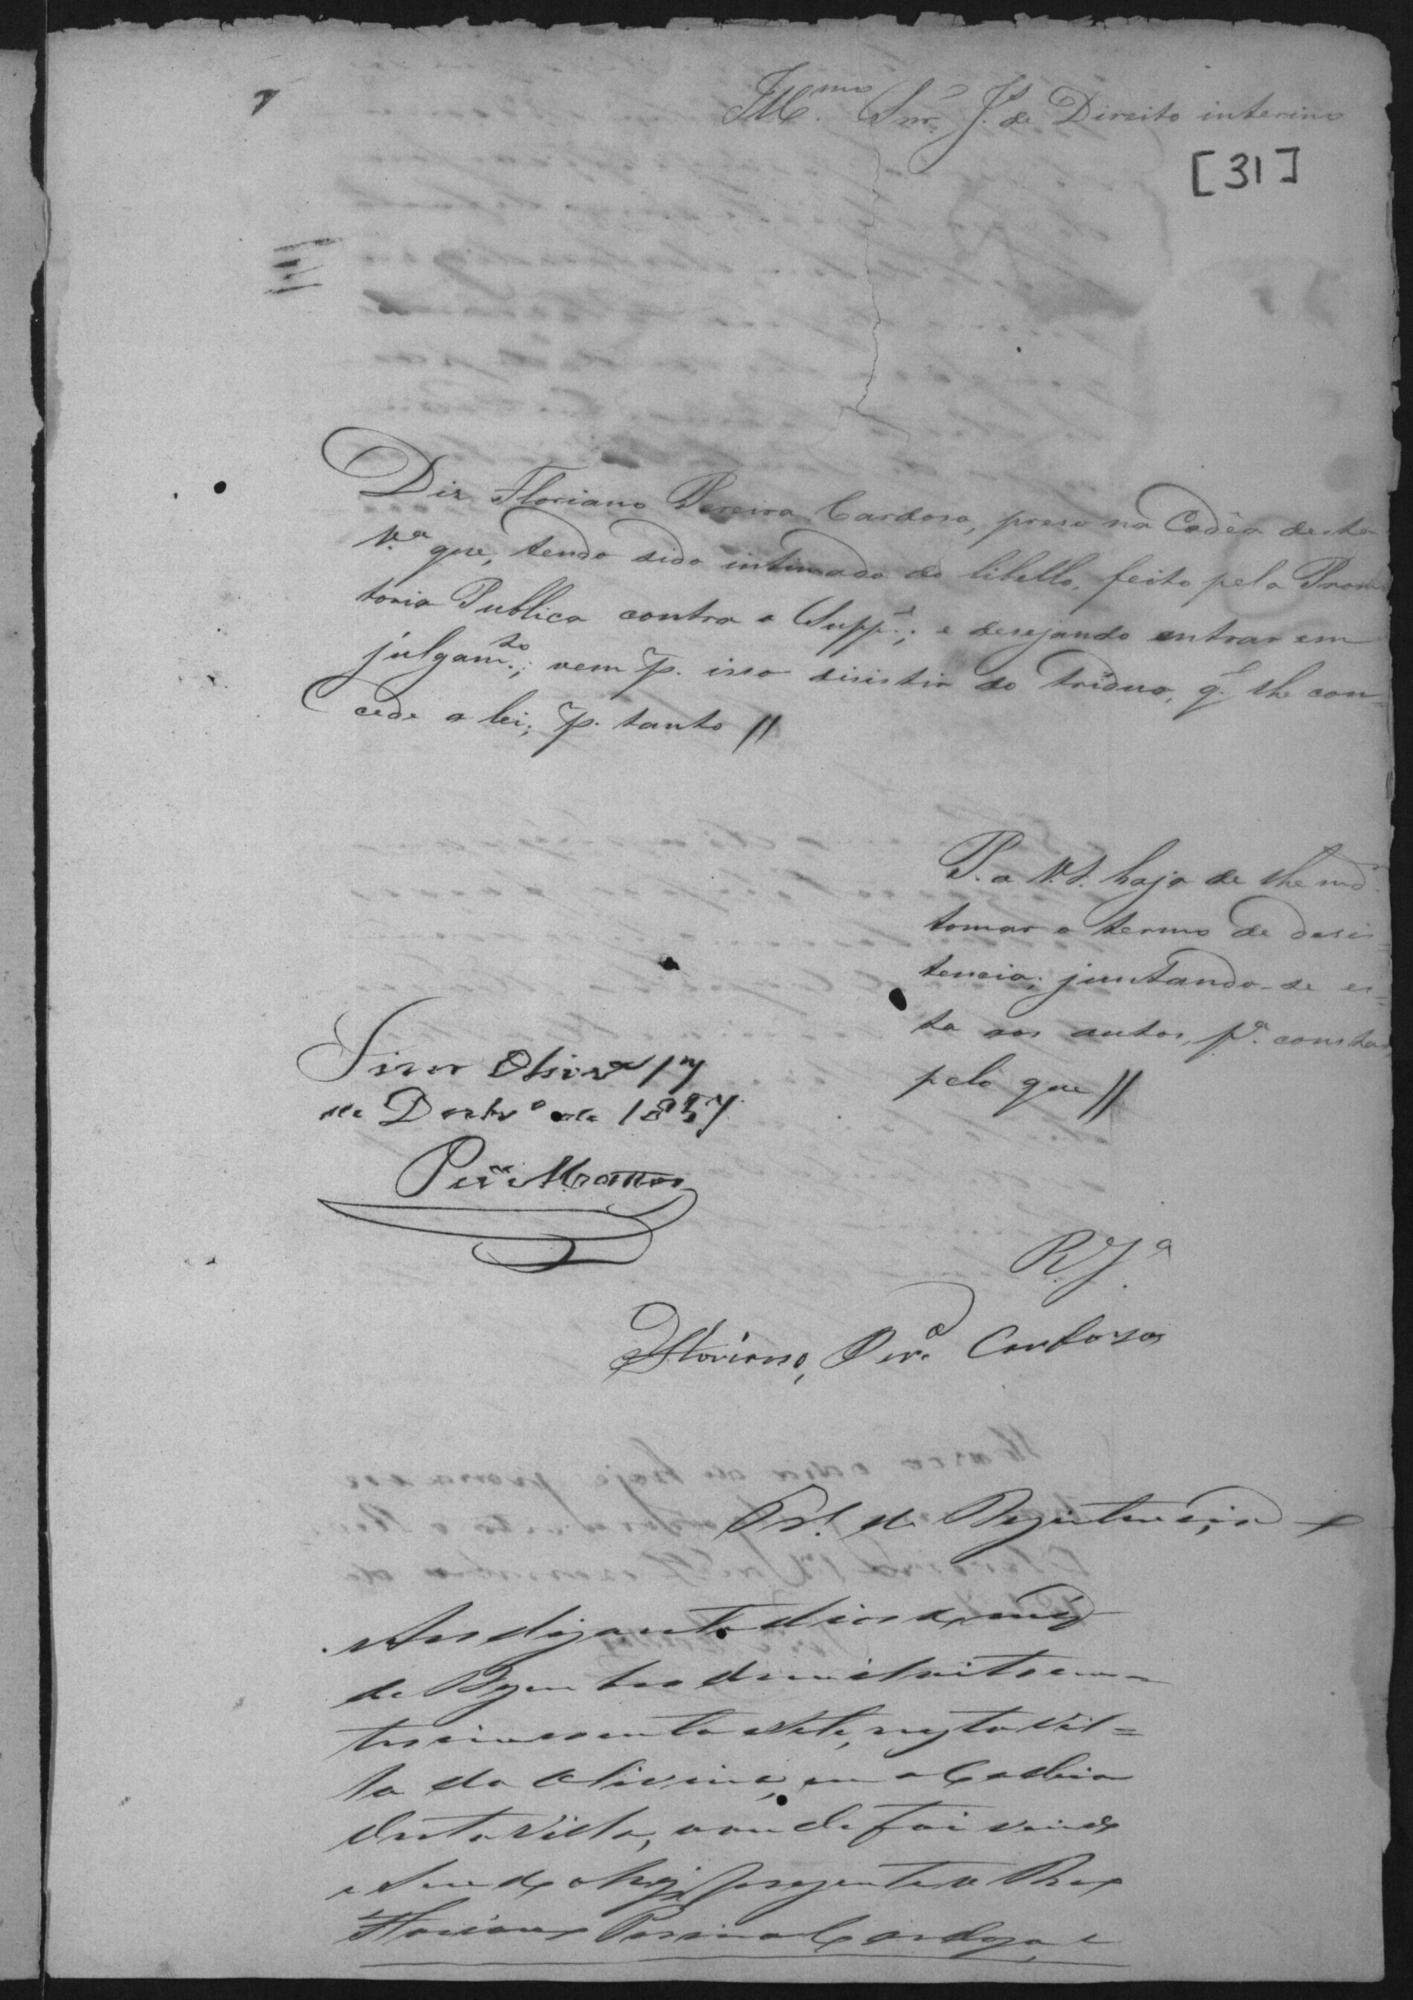 Ill.mo Snr. J. de Direito interino
[31]
Diz Floriano Pereira Cardoso, preso na Cadêa desta
V.a que, tendo sido intimado do libello, feito pela Promo
toria Publica contra o Supp.e; e desejando entrar em
julgam.to; vem p. isso disistir do triduo, q. lhe con-
cede a lei; p. tanto //
P. a V.S. haja de lhe md.
tomar o termo de desis=
tencia; juntando-se es=
ta aos autos, p.a constar
pelo que //
Sim Oliv.a 17
de Dezbr.o de 1857
Per.a Mattos
R. J.a
Floriano, Per.a Cardozo
de Desistencia
Aos dezasete dias do mez
de Dezembro de mil oitocen-
tos cincoenta e sete, nesta Vil=
la da Oliveira, em a Cadeia
desta Villa, aonde foi vindo
e sendo ahi presente o Reo
Floriano Pereira Cardozo, e